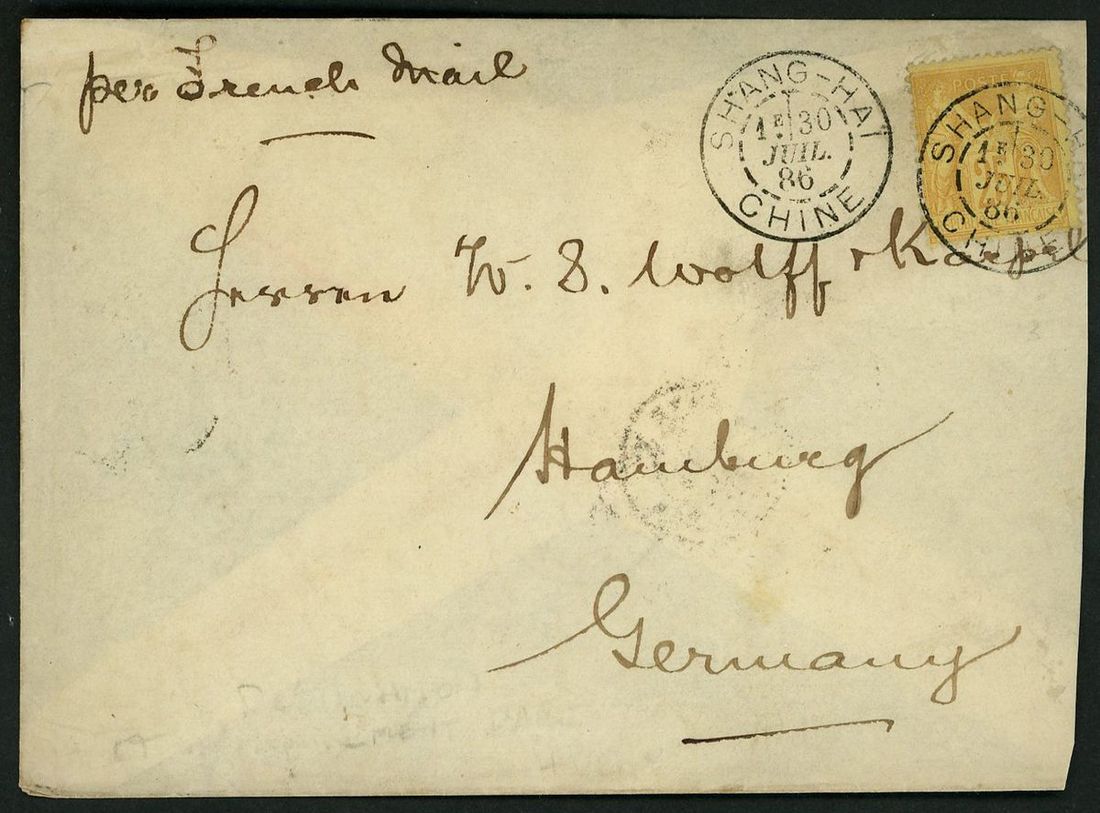 per French Mail
SHANG-HAÏ
1E 30
JUIL.
86
CHINE
POSTE
SHANG-H
1E 30
JUIL.
86
CHINE
Herren W. S. Wolff & Karpel
Hamburg
Germany